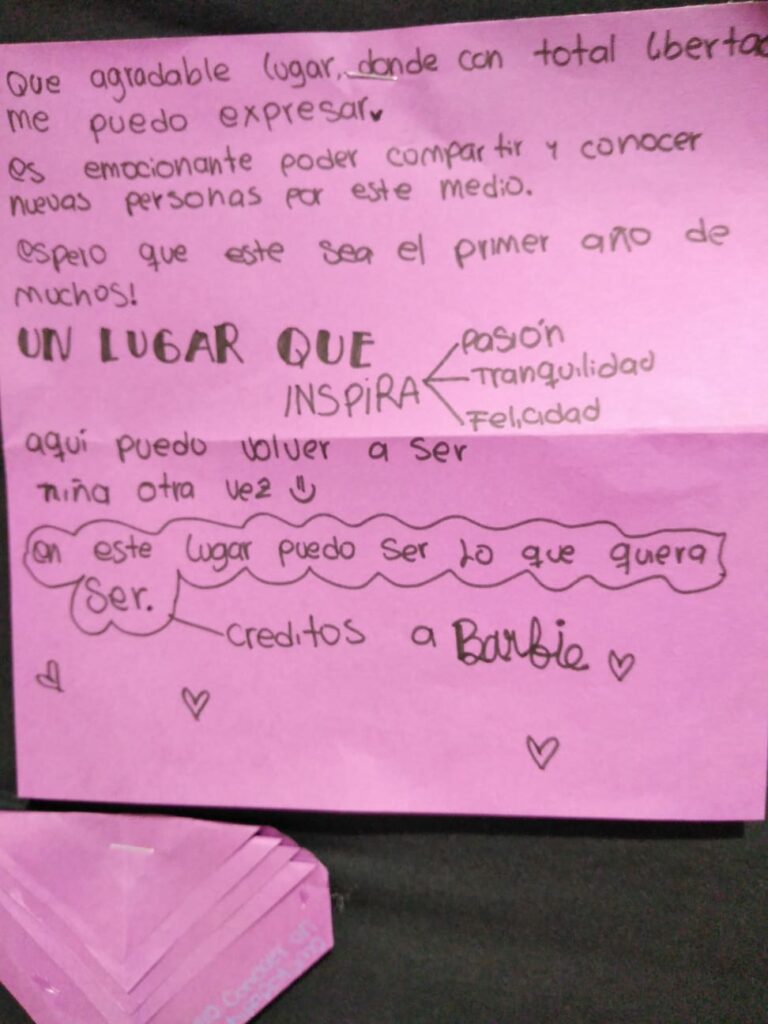 Que agradable lugar, donde con total libertad
me puedo expresar♥
es emocionante poder compartir y conocer
nuevas personas por este medio.
espero que este sea el primer año de
muchos!
UN LUGAR QUE
INSPIRA
Pasión
Tranquilidad
Felicidad
aquí puedo volver a ser
niña otra vez
en este lugar puedo ser lo que quera
Ser.
creditos a Barbie
Conocer un